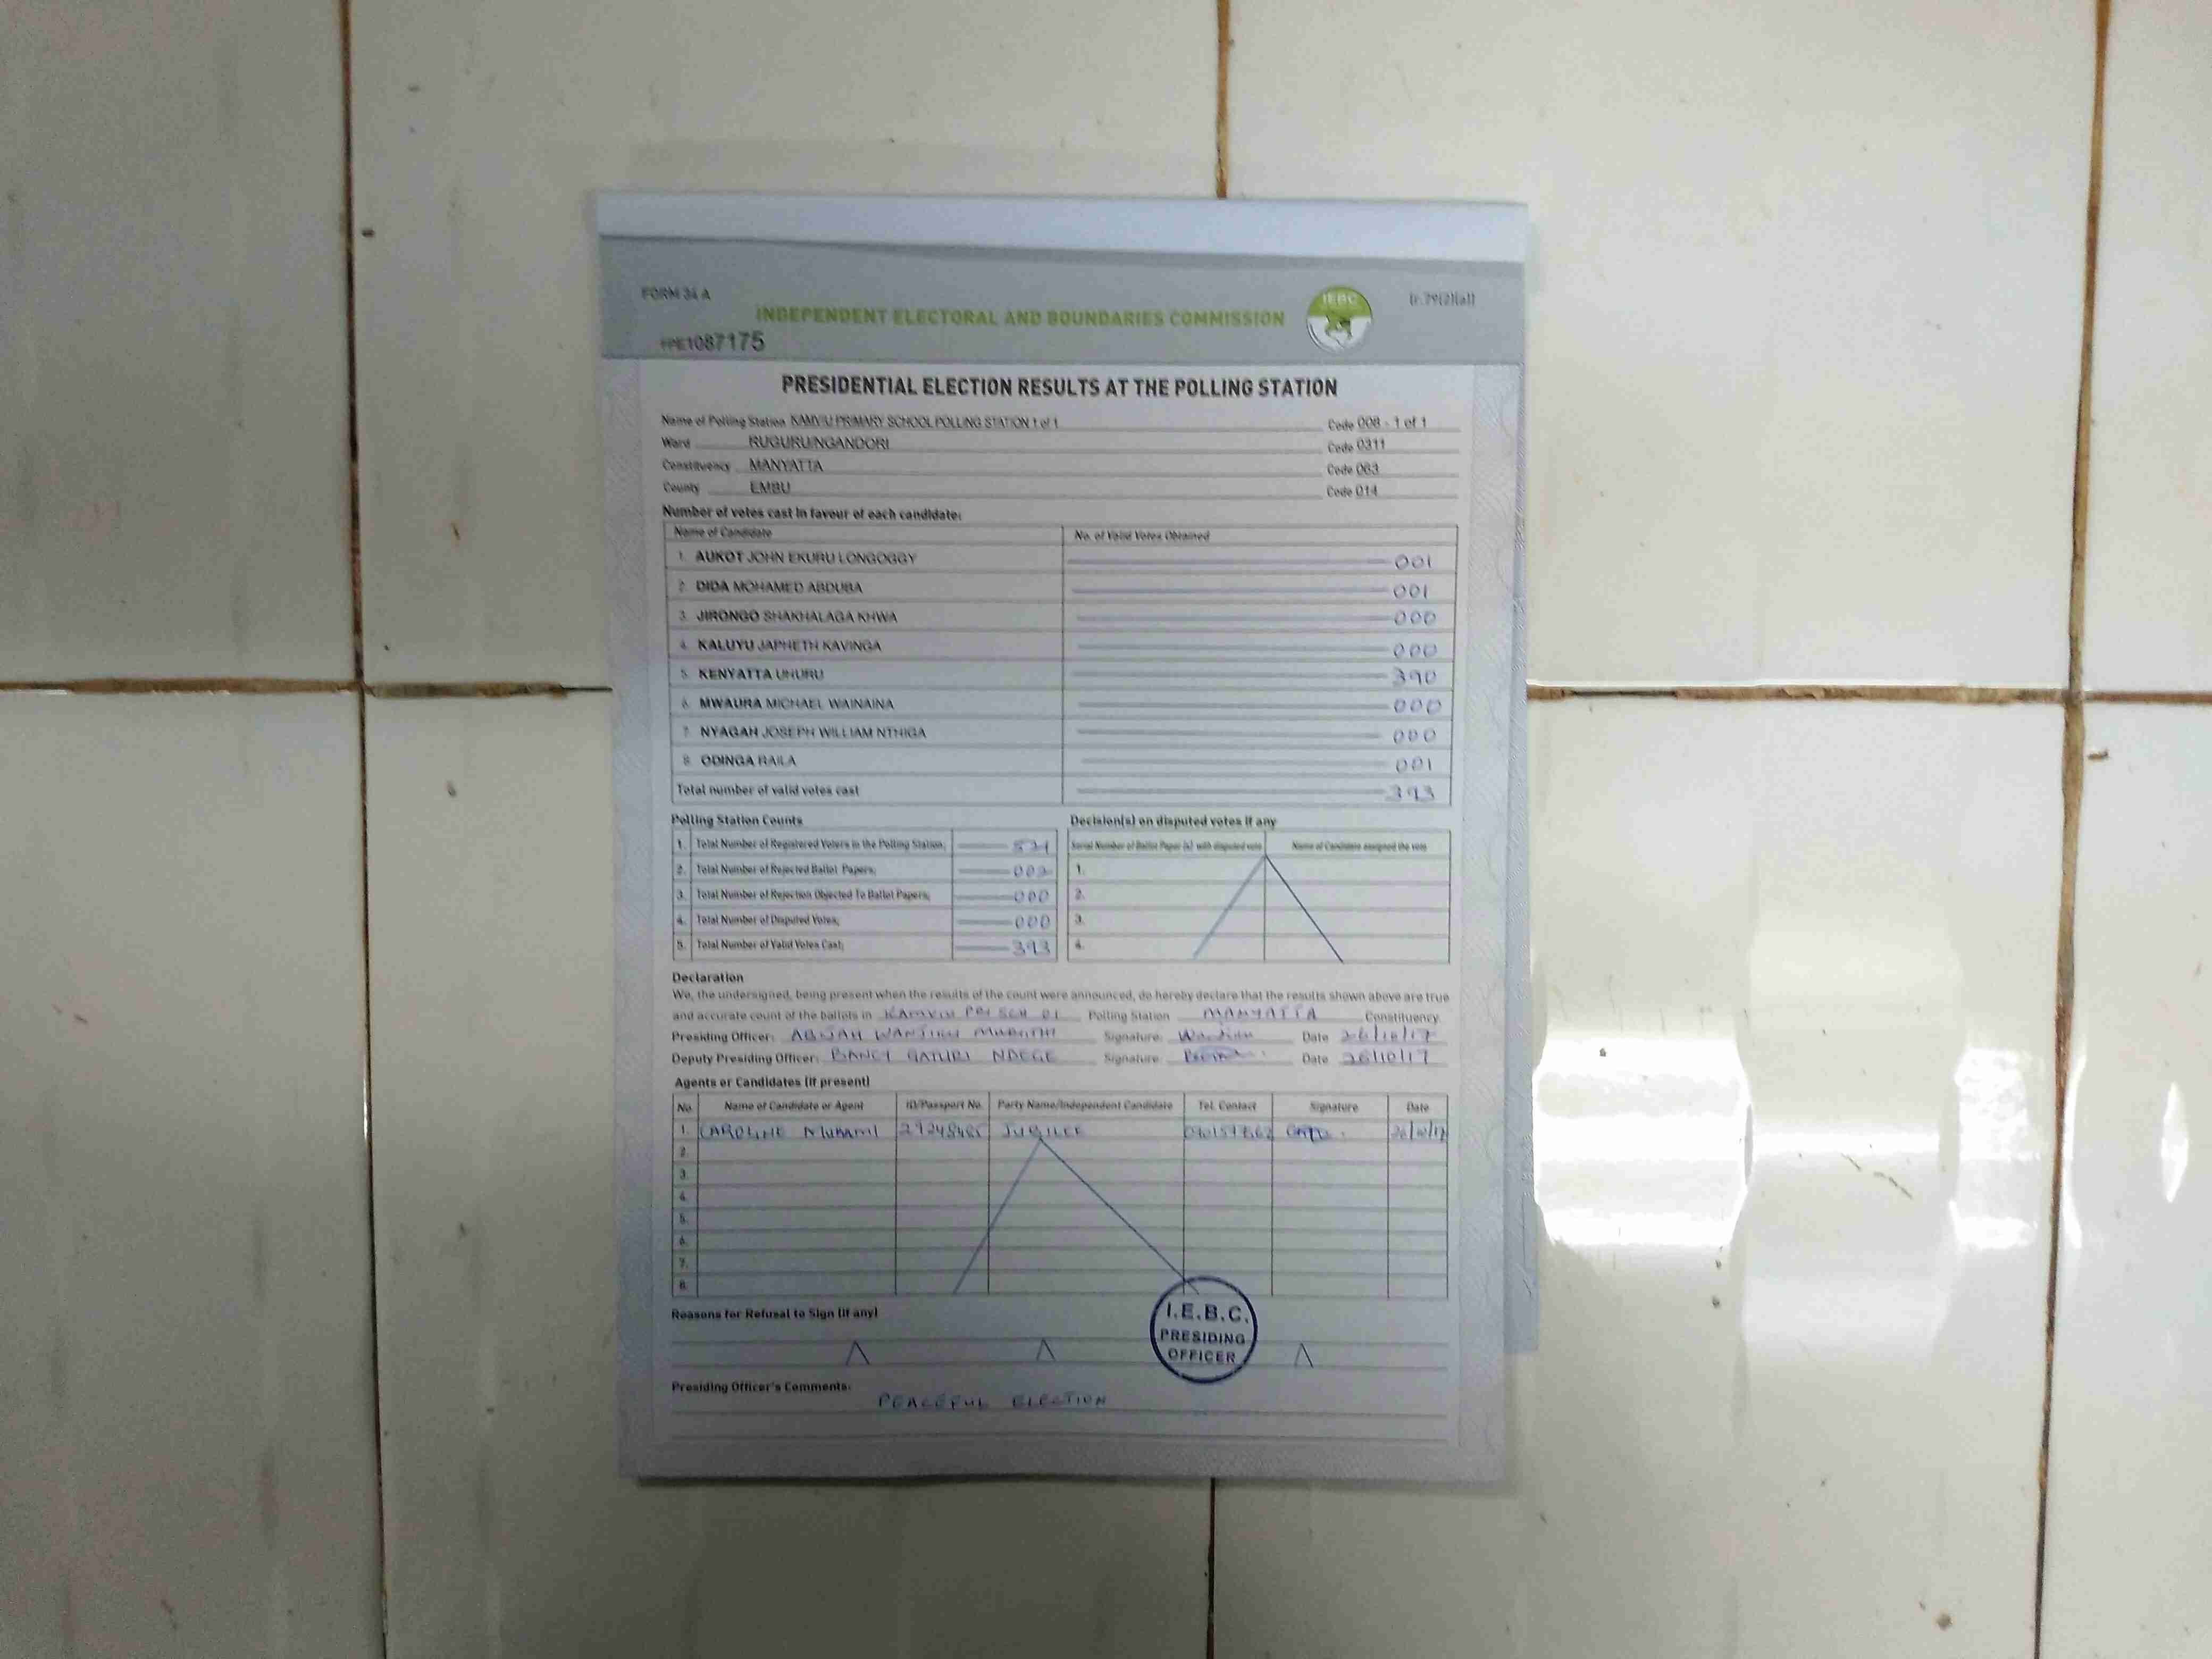 FORM 34 A
(r.79(2)(a))
IEBC
INDEPENDENT ELECTORAL AND BOUNDARIES COMMISSION
1087175
PRESIDENTIAL ELECTION RESULTS AT THE POLLING STATION
Name of Polling Station KAMVIU PRIMARY SCHOOL POLLING STATION 1 of 1 Code 008 - 1 of 1
Ward RUGURU/NGANDORI Code 0311
Constituency MANYATTA Code 063
County EMBU Code 014
Number of votes cast in favour of each candidate:
Name of Candidate No. of Valid Votes Obtained
1. AUKOT JOHN EKURU LONGOGGY 001
2. DIDA MOHAMED ABDUBA 001
3. JIRONGO SHAKHALAGA KHWA 000
4. KALUYU JAPHETH KAVINGA 000
5. KENYATTA UHURU 390
6. MWAURA MICHAEL WAINAINA 000
7. NYAGAH JOSEPH WILLIAM NTHIGA 000
8. ODINGA RAILA 001
Total number of valid votes cast 393
Polling Station Counts
1. Total Number of Registered Voters in the Polling Station;
2. Total Number of Rejected Ballot Papers;
3. Total Number of Rejection Objected To Ballot Papers; 000
4. Total Number of Disputed Votes; 000
5. Total Number of Valid Votes Cast; 393
Decision(s) on disputed votes if any
Serial Number of Ballot Paper (s) with disputed vote Name of Candidate assigned the vote
1.
2.
3.
4.
Declaration
We, the undersigned, being present when the results of the count were announced, do hereby declare that the results shown above are true
and accurate count of the ballots in KAMVIU PRI SCH 01 Polling Station MANYATTA Constituency.
Presiding Officer: WANJIKU Signature: Date 26/10/17
Deputy Presiding Officer: NDEGE Signature Date 26/10/17
Agents or Candidates (if present)
No. Name of Candidate or Agent ID/Passport No. Party Name/Independent Candidate Tel. Contact Signature Date
1. CAROLINE JUBILEE 26/10/17
2.
3.
4.
5.
6.
7.
8.
Reasons for Refusal to Sign (if any)
I.E.B.C.
PRESIDING
OFFICER
Presiding Officer's Comments:
PEACEFUL ELECTION